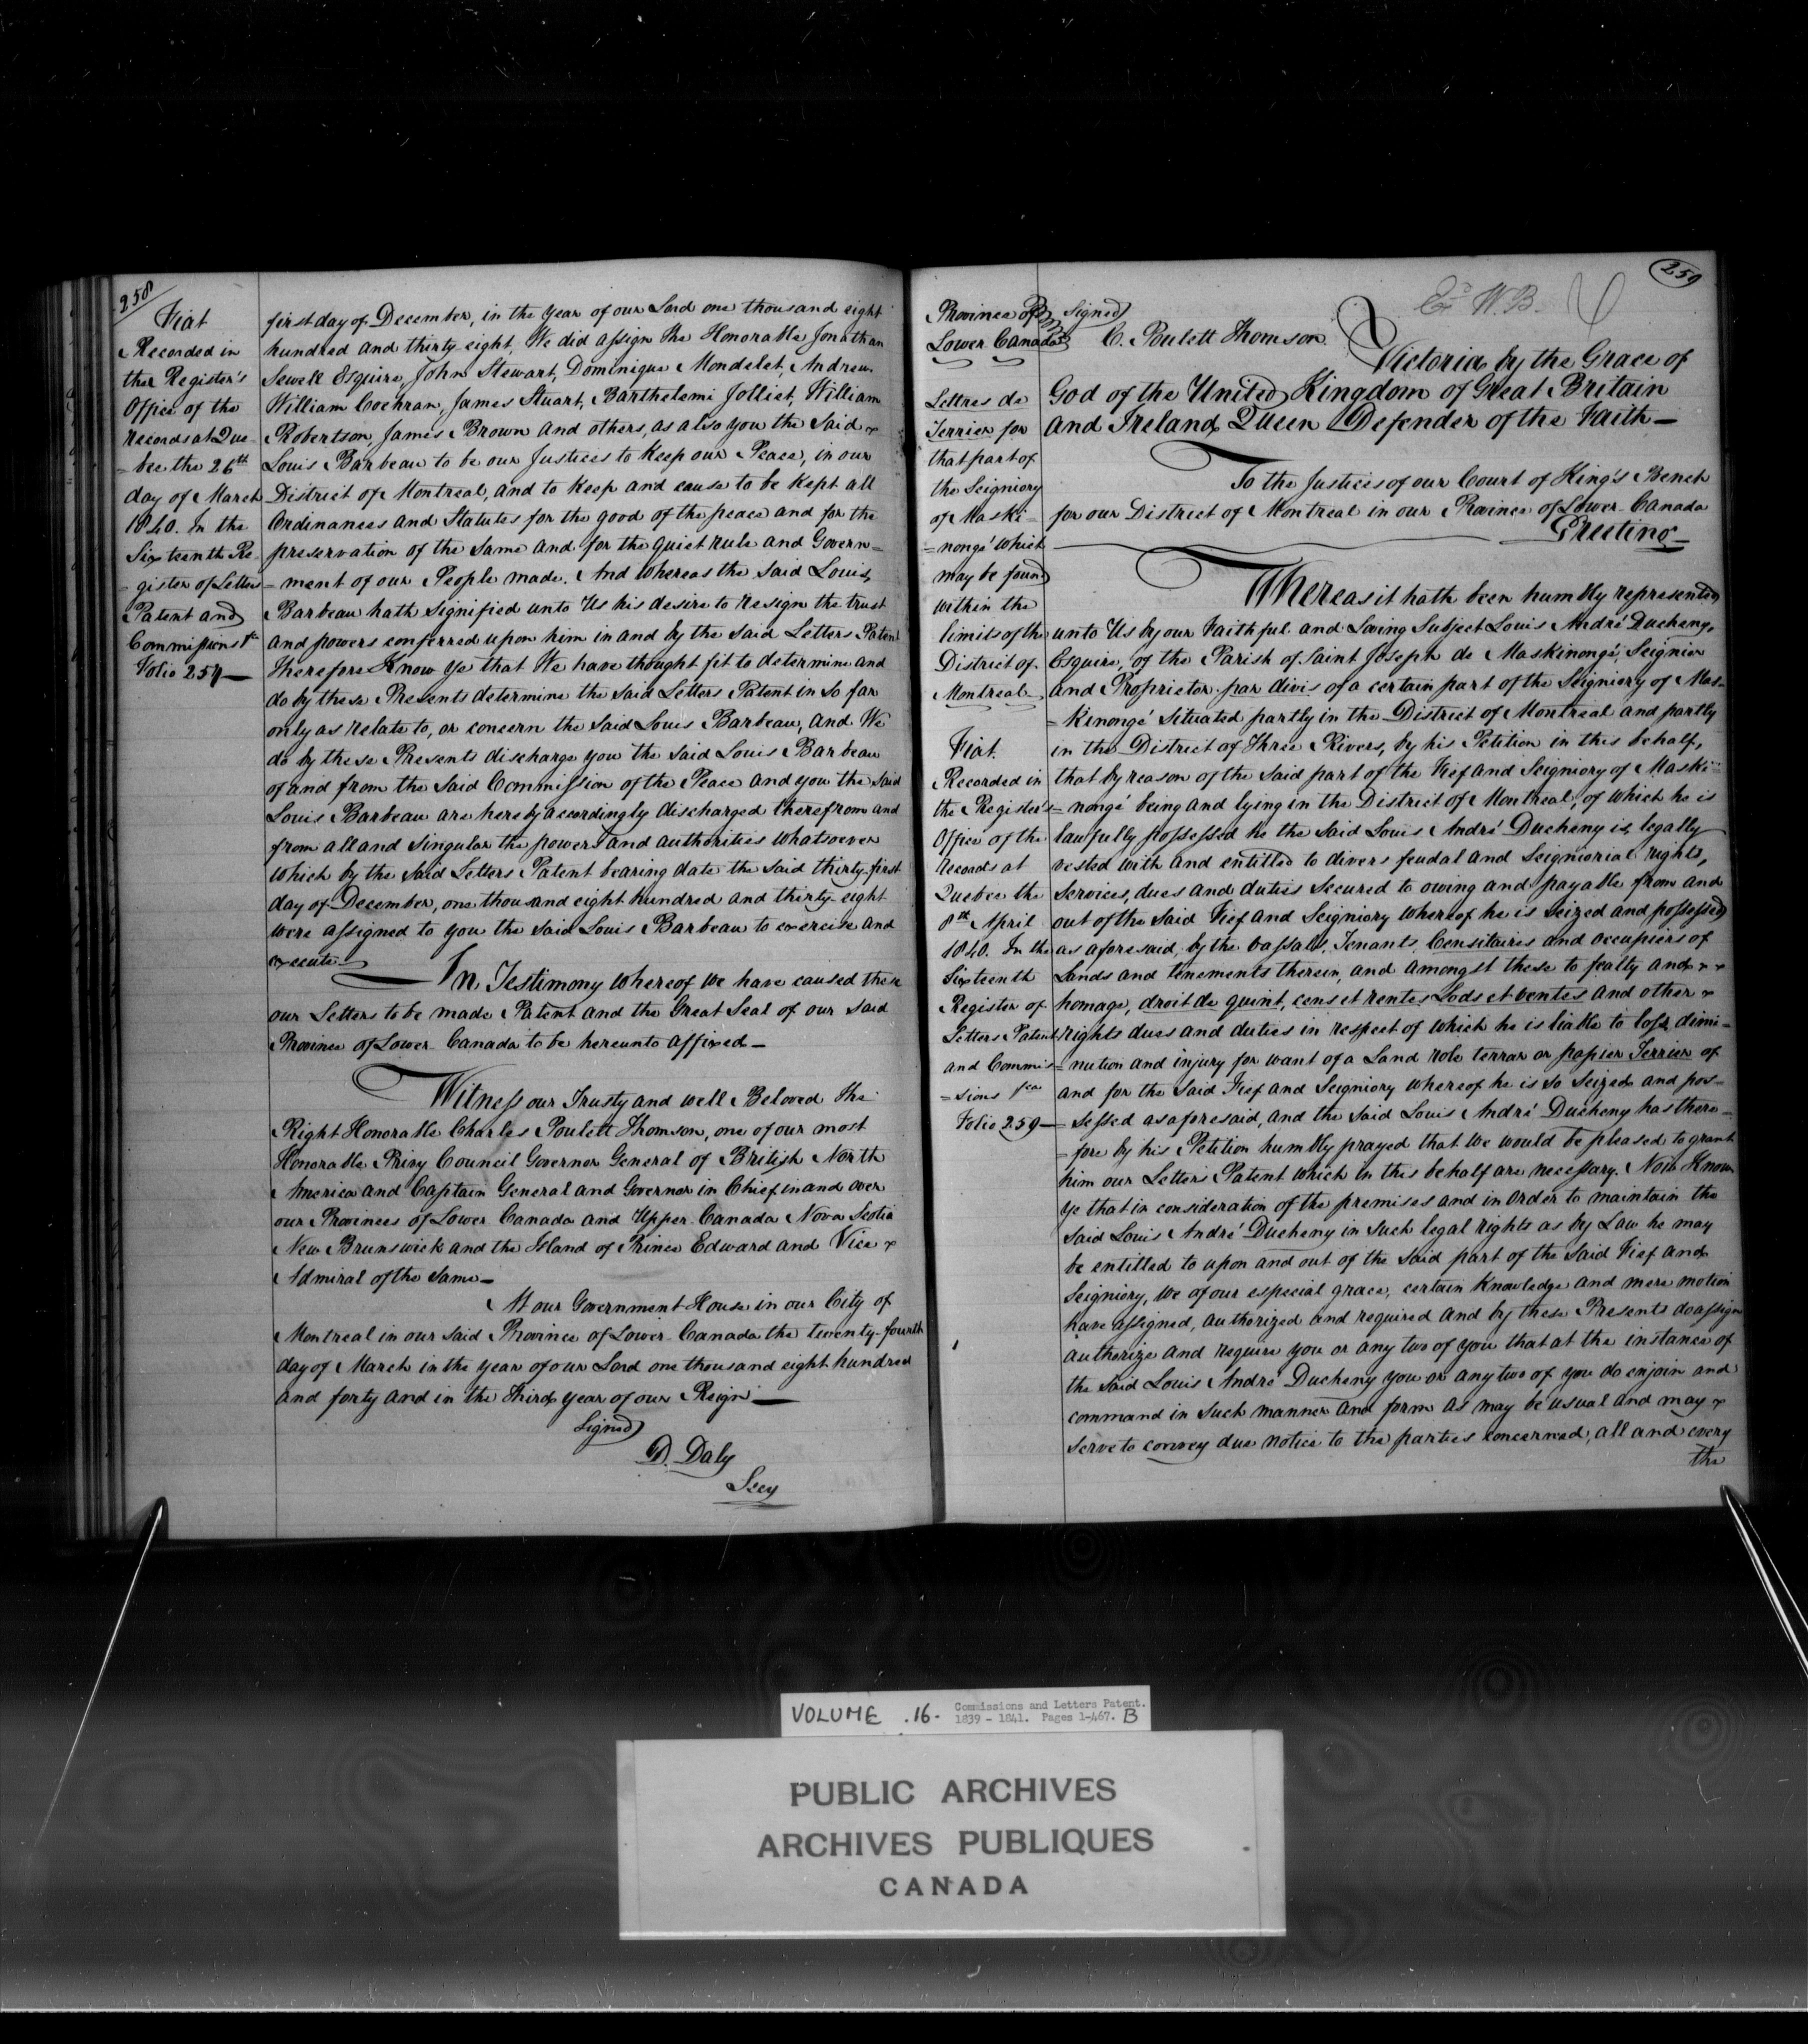 258
Fiat
Recorded in
the Register's
Office of the
records at Que
=bec the 26th
day of March
1840. In the
Sixteenth Re
=gister of Letters
Patent and
Commissions &ca
Folio 257—
first day of December, in the year of our Lord one thousand eight
hundred and thirty eight, We did assign the Honorable Jonathan
Sewell Esquire, John Stewart, Dominique Mondelet, Andrew
William Cochran, James Stuart, Barthelemi Jolliet, William
Robertson, James Brown and others, as also you the Said
Louis Barbeau to be our Justices to Keep our Peace, in our
District of Montreal, and to Keep and cause to be Kept all
Ordinances and Statutes for the good of the peace and for the
preservation of the Same and for the quiet rule and Govern=
=ment of our People made. And whereas the Said Louis
Barbeau hath Signified unto Us his desire to resign the trust
and powers conferred upon him in and by the Said Letters Patent
Therefore Know Ye that We have thought fit to determine and
do by these Presents determine the Said Letters Patent in So far
only as relate to, or concern the Said Louis Barbeau, and We
do by these Presents discharge you the Said Louis Barbeau
of and from the Said Commission of the Peace and you the Said
Louis Barbeau are hereby accordingly discharged therefrom and
from all and Singular the powers and authorities whatsoever
which by the Said Letters Patent bearing date the Said thirty-first
day of December, one thousand eight hundred and thirty-eight
were assigned to you the Said Louis Barbeau to exercise and
execute—
In Testimony whereof We have caused these
our Letters to be made Patent and the Great Seal of our Said
Province of Lower Canada to be hereunto affixed—
Witness our Trusty and well Beloved The
Right Honorable Charles Poulett Thomson, one of our most
Honorable Privy Council Governor General of British North
America and Captain General and Governor in Chief in and over
our Provinces of Lower Canada and Upper Canada Nova Scotia
New Brunswick and the Island of Prince Edward and Vice
Admiral of the Same—
At our Government House in our City of
Montreal in our Said Province of Lower Canada the twenty-fourth
day of March in the year of our Lord one thousand eight hundred
and forty and in the Third year of our Reign—
Signed
D. Daly
Secy
259
W.B.
Province of
Lower Canada
Lettres de
Terrier for
that part of
the Seigniory
of Maski=
=nongé which
may be found
within the
limits of the
District of
Montreal
Fiat.
Recorded in
the Register's
Office of the
records at
Quebec the
8th April
1840. In the
Sixteenth
Register of
Letters Patent
and Commis
=sions &ca
Folio 259—
Signed
C. Poulett Thomson.
Victoria by the Grace of
God of the United Kingdom of Great Britain
and Ireland Queen Defender of the Faith—
To the Justices of our Court of King's Bench
for our District of Montreal in our Province of Lower Canada
Greeting—
Whereas it hath been humbly represented
unto Us by our Faithful and Loving Subject Louis André Ducheny,
Esquire, of the Parish of Saint Joseph de Maskinongé, Seignior
and Proprietor par divis of a certain part of the Seigniory of Mas=
=kinongé Situated partly in the District of Montreal and partly
in the District of Three Rivers, by his Petition in this behalf,
that by reason of the Said part of the Fief and Seigniory of Maski=
=nongé being and lying in the District of Montreal, of which he is
lawfully possessed he the Said Louis André Ducheny is legally
vested with and entitled to divers feudal and Seigniorial rights,
Services, dues and duties Secured to owing and payable from and
out of the Said Fief and Seigniory whereof he is Seized and possessed
as aforesaid by the vassals, Tenants, Censitaires and occupiers of
Lands and tenements therein, and amongst these to fealty and
homage, droit de quint, cens et rentes Lods et ventes and other
rights dues and duties in respect of which he is liable to loss dimi=
=nution and injury for want of a Land role terrar or papier Terrier of
and for the Said Fief and Seigniory whereof he is So Seized and pos=
=sessed as aforesaid, and the Said Louis André Ducheny has there=
=fore by his Petition humbly prayed that we would be pleased to grant
him our Letters Patent which in this behalf are necessary. Now Know
ye that in consideration of the premises and in order to maintain the
Said Louis André Ducheny in Such legal rights as by Law he may
be entitled to upon and out of the Said part of the Said Fief and
Seigniory, We of our especial grace, certain Knowledge and mere motion
have assigned, authorized and required and by these Presents do assign
authorize and require you or any two of you that at the instance of
the Said Louis André Ducheny you or any two of you do enjoin and
command in Such manner and form as may be usual and may
Serve to convey due notice to the parties concerned, all and every
the
VOLUME .16. Commissions and Letters Patent.
1839 - 1841. Pages 1-467. B
PUBLIC ARCHIVES
ARCHIVES PUBLIQUES
CANADA